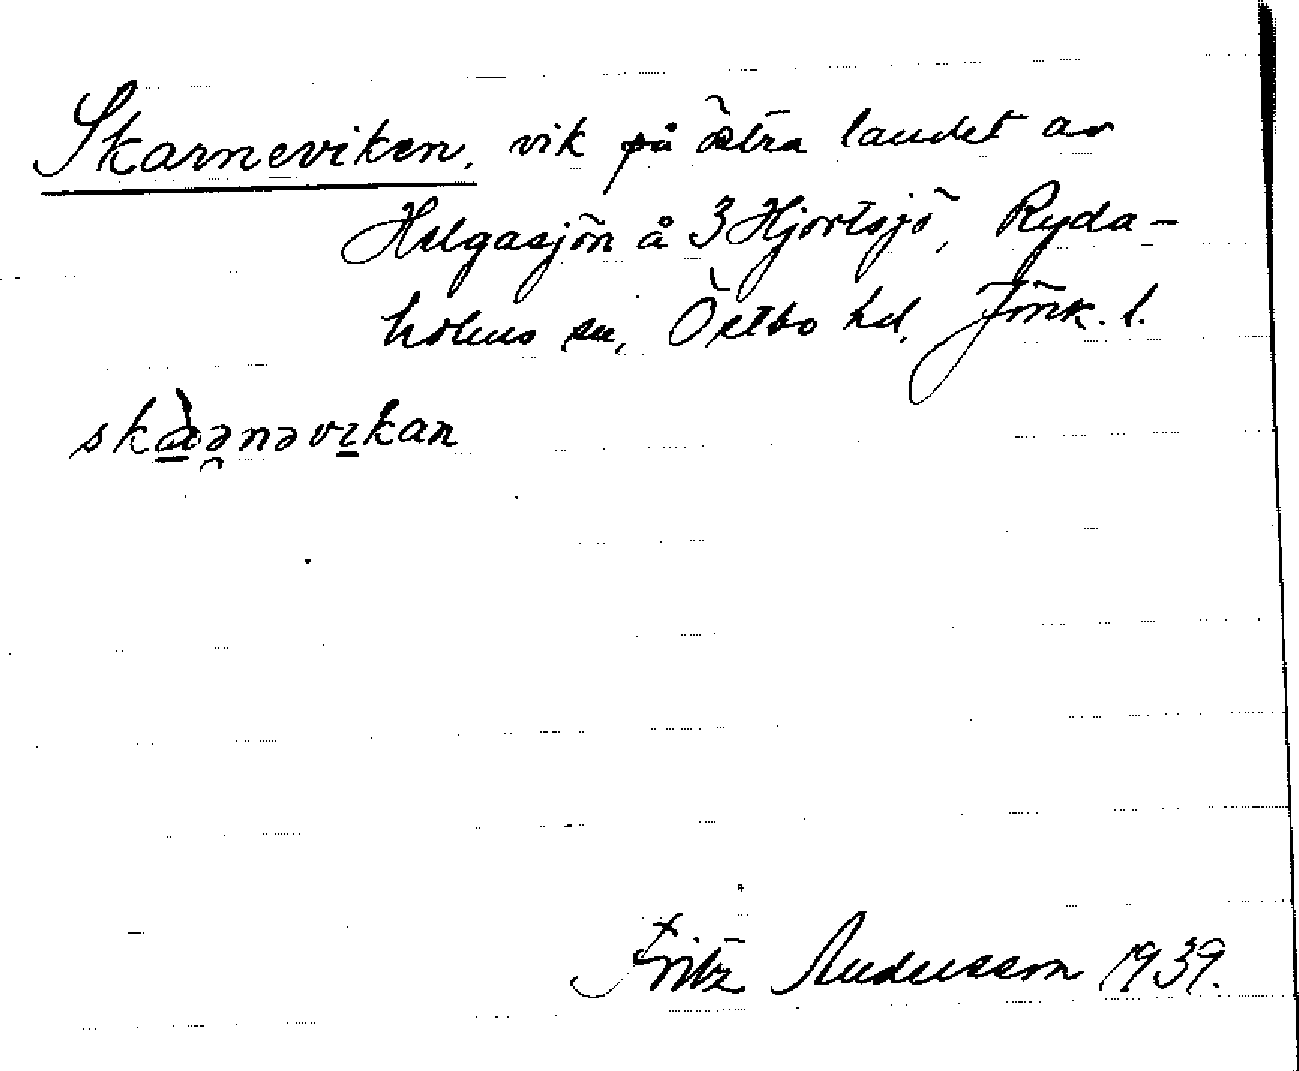 Skarneviken, vik på östra landet av
Helgasjön å 3 Hjortsjö, Ryda-
holms sn, Östbo hd, Jönk. l.
skàə̯nəvɪkan
Fritz Andersson 1939.